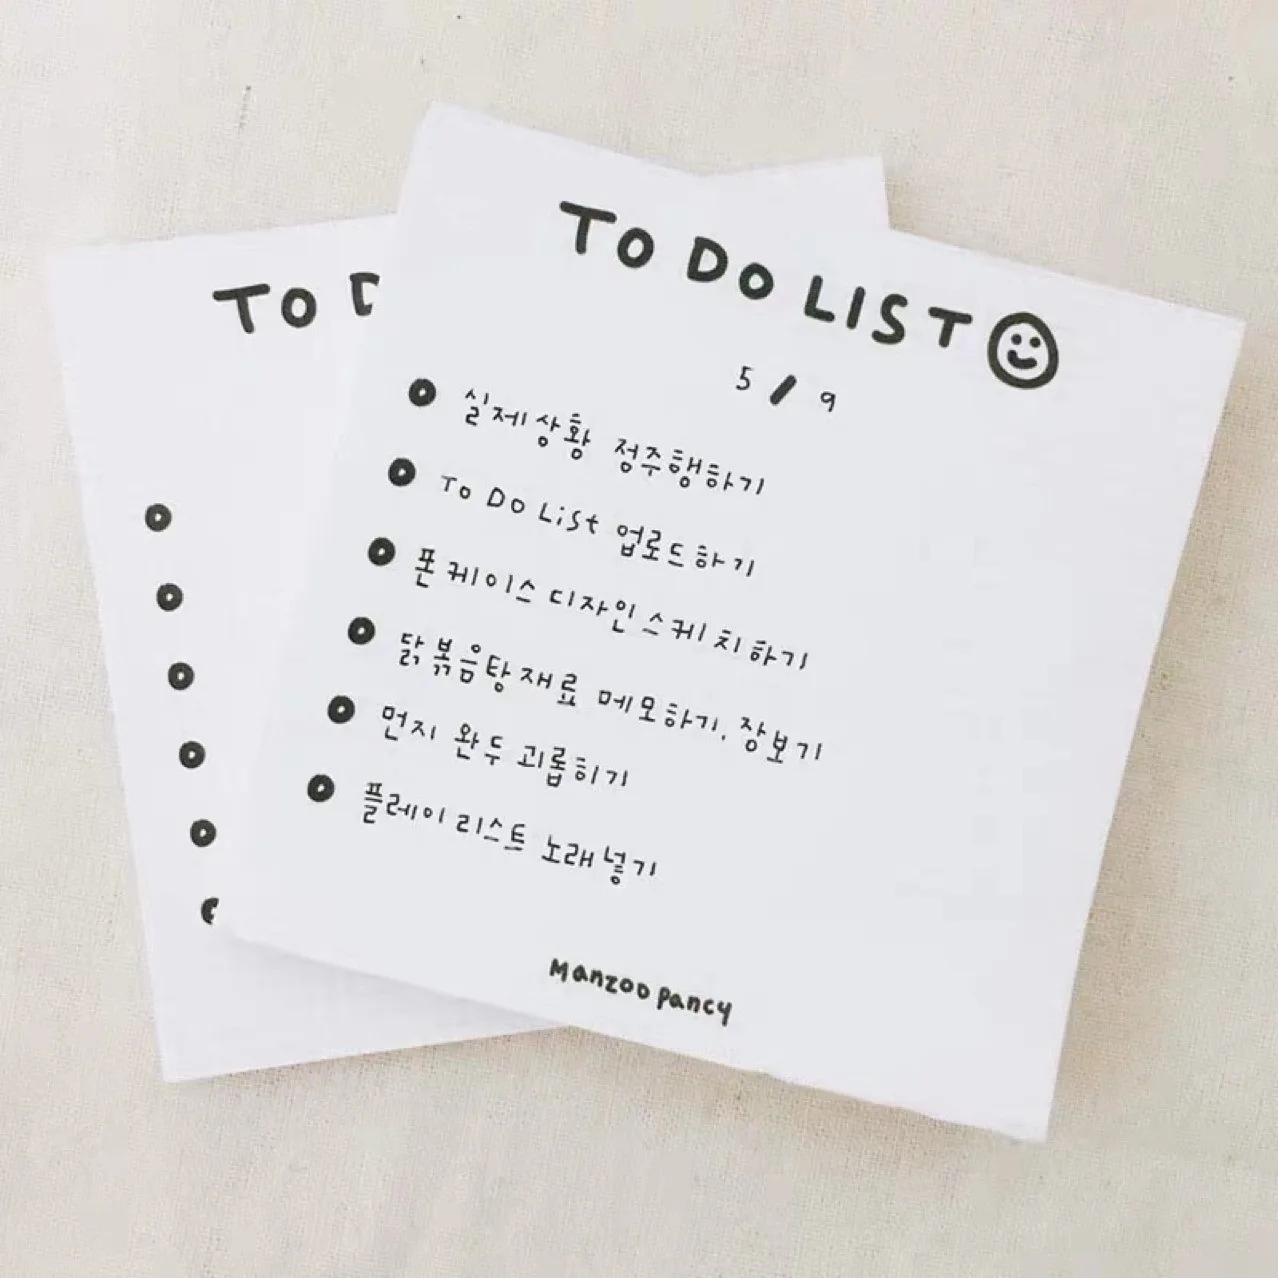 TO DO LIST
5 / 9
실제상황 정주행하기
To Do List 업로드하기
폰케이스 디자인 스케치하기
닭볶음탕 재료 메모하기, 장보기
먼지 완두 괴롭히기
플레이리스트 노래넣기
Manzoo pancy
TO D